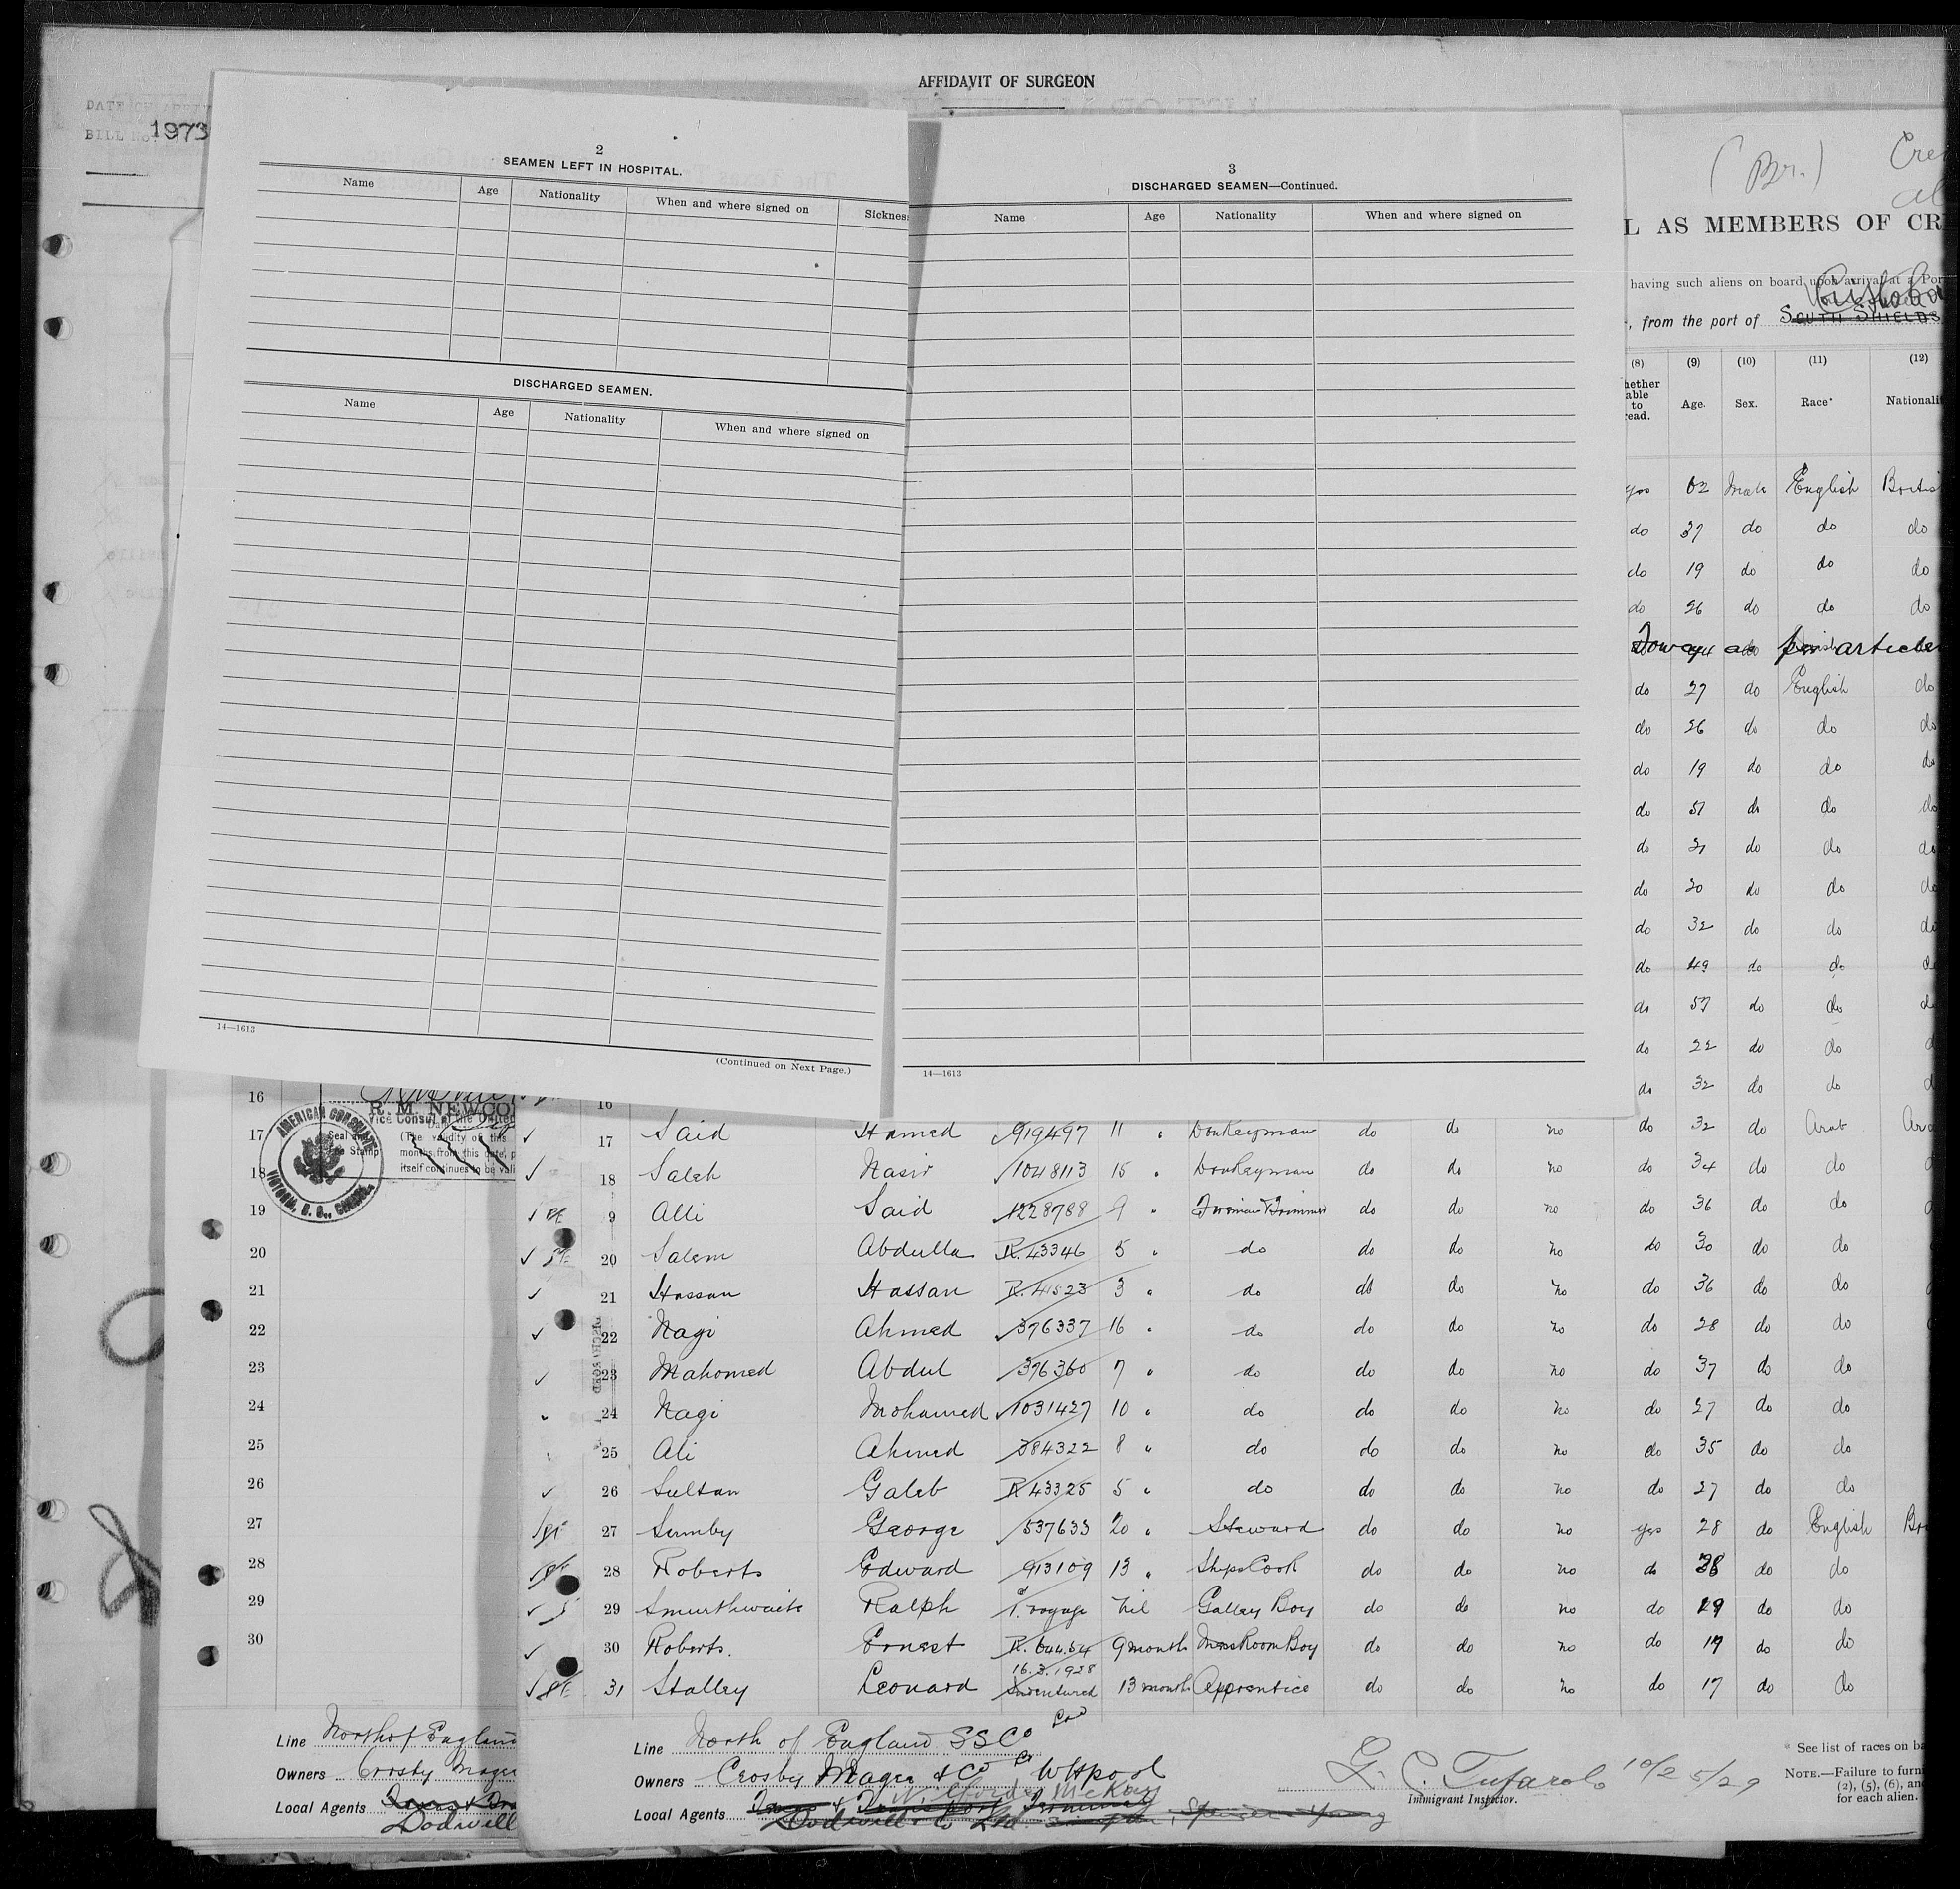 AFFIDAVIT OF SURGEON
BILL NO. 1973
2
SEAMEN LEFT IN HOSPITAL.
Name Age Nationality When and where signed on
DISCHARGED SEAMEN.
Name Age Nationality When and where signed on
14—1613
(Continued on Next Page.)
3
DISCHARGED SEAMEN—Continued.
Name Age Nationality When and where signed on
14—1613
(Br.)
L AS MEMBERS OF CR
having such aliens on board upon arrival at a Por
, from the port of SOUTH SHIELDS
(8) (9) (10) (11) (12)
hether able to read. Age. Sex. Race* Nationalit
yes 62 Male English British
do 37 do do do
do 19 do do do
do 26 do do do
as per articles
do 27 do English do
do 26 do do do
do 19 do do do
do 57 do do do
do 31 do do do
do 20 do do do
do 32 do do do
do 49 do do do
do 57 do do do
do 22 do do do
do 32 do do do
16
17
18
19
20
21
22
23
24
25
26
27
28
29
30
R. M. NEWCO
Vice Consul of the United
(The validity of this
months from this date, p
itself continues to be vali
Seal and
Stamp
AMERICAN CONSULATE
VICTORIA, B. C., CANADA.
16
17 Said Hamed 919497 11 " Donkeyman do do no do 32 do Arab
18 Saleh Nasir 1048113 15 " Donkeyman do do no do 34 do do
9 Alli Said 1228788 9 " Fireman & Trimmer do do no do 36 do do
20 Salem Abdulla R.43346 5 " do do do no do 30 do do
21 Hassan Hassan R.41523 3 " do do do no do 36 do do
22 Nagi Ahmed 376337 16 " do do do no do 28 do do
23 Mahomed Abdul 376360 7 " do do do no do 37 do do
24 Nagi Mohamed 1031427 10 " do do do no do 27 do do
25 Ali Ahmed 384322 8 " do do do no do 35 do do
26 Sultan Galeb R 43325 5 " do do do no do 27 do do
27 Sumby George 537633 20 " Steward do do no yes 28 do English
28 Roberts Edward 913109 13 " Ships Cook do do no do 38 do do
29 Smurthwaite Ralph 1. voyage nil Galley Boy do do no do 19 do do
30 Roberts. Ernest 9 months MessRoomBoy do do no do 19 do do
16.3.1928
31 Stalley Leonard Indentured 13 months Apprentice do do no do 17 do do
Line North of England
Owners Crosby Magee
Local Agents
Dodwell
Line North of England SS Co Ltd
Owners Crosby Magee & Co W Hpool
Local Agents
Dodwell & Co Ltd.
G. C. Tufarolo 10/25/29
Immigrant Inspector.
* See list of races on ba
NOTE.—Failure to furn
(2), (5), (6), an
for each alien.